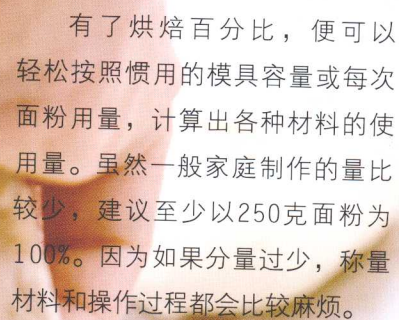 有了烘焙百分比，便可以
轻松按照惯用的模具容量或每次
面粉用量，计算出各种材料的使
用量。虽然一般家庭制作的量比
较少，建议至少以250克面粉为
100%。因为如果分量过少，称量
材料和操作过程都会比较麻烦。